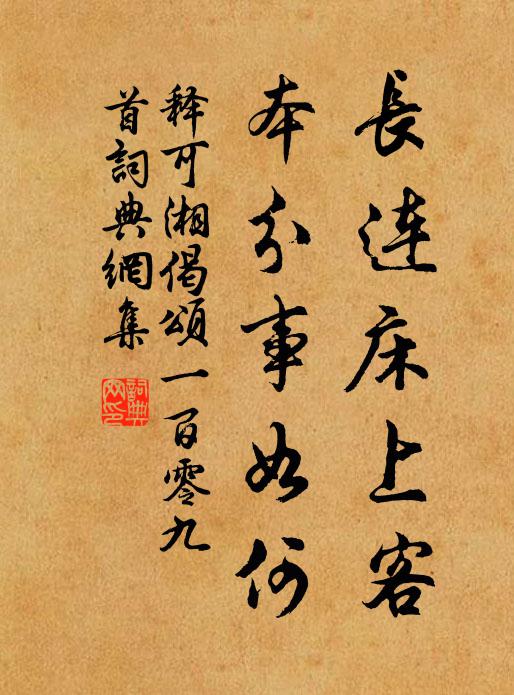 長連床上客
本分事如何
释可湘偈頌一百零九
首詞典網集
詞典
网印